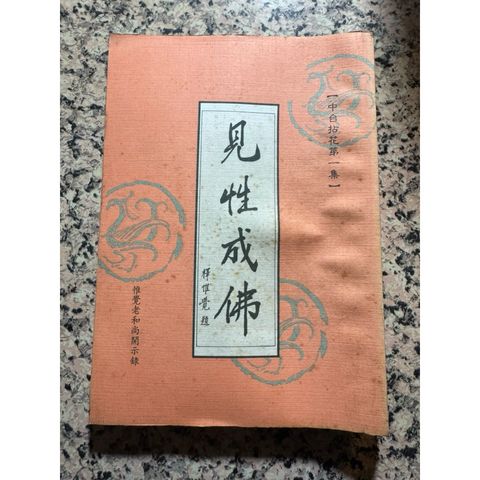 【中台拈花第一集】
見性成佛
釋惟覺題
惟覺老和尚開示錄